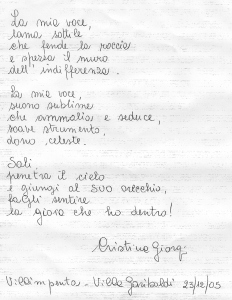 La mia voce,
lama sottile
che fende la roccia
e spezza il muro
dell'indifferenza.
La mia voce,
suono sublime
che ammalia e seduce,
soave strumento,
dono celeste.
Sali
penetra il cielo
e giungi al SUO orecchio,
fagli sentire
la gioia che ho dentro!
Cristina Giorgi
Villimpenta - Villa Garibaldi 23/12/05